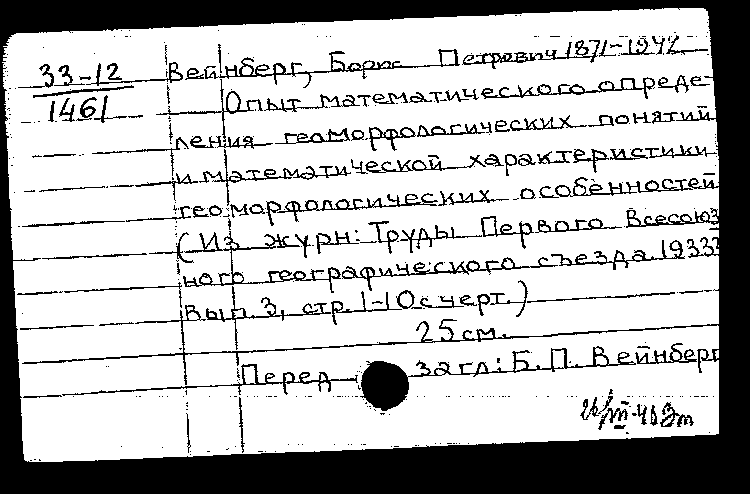 33-12 Вейнберг, Борис Петрович 1871-1942
1461 Опыт математического опреде-
ления геоморфологических понятий
и математической характеристики
геоморфологических особенностей
(Из журн: Труды Первого Всесоюз
ного географического съезда. 1933
Вып. 3, стр. 1-10 с черт.)
25 см.
Перед загл: Б. П. Вейнберг